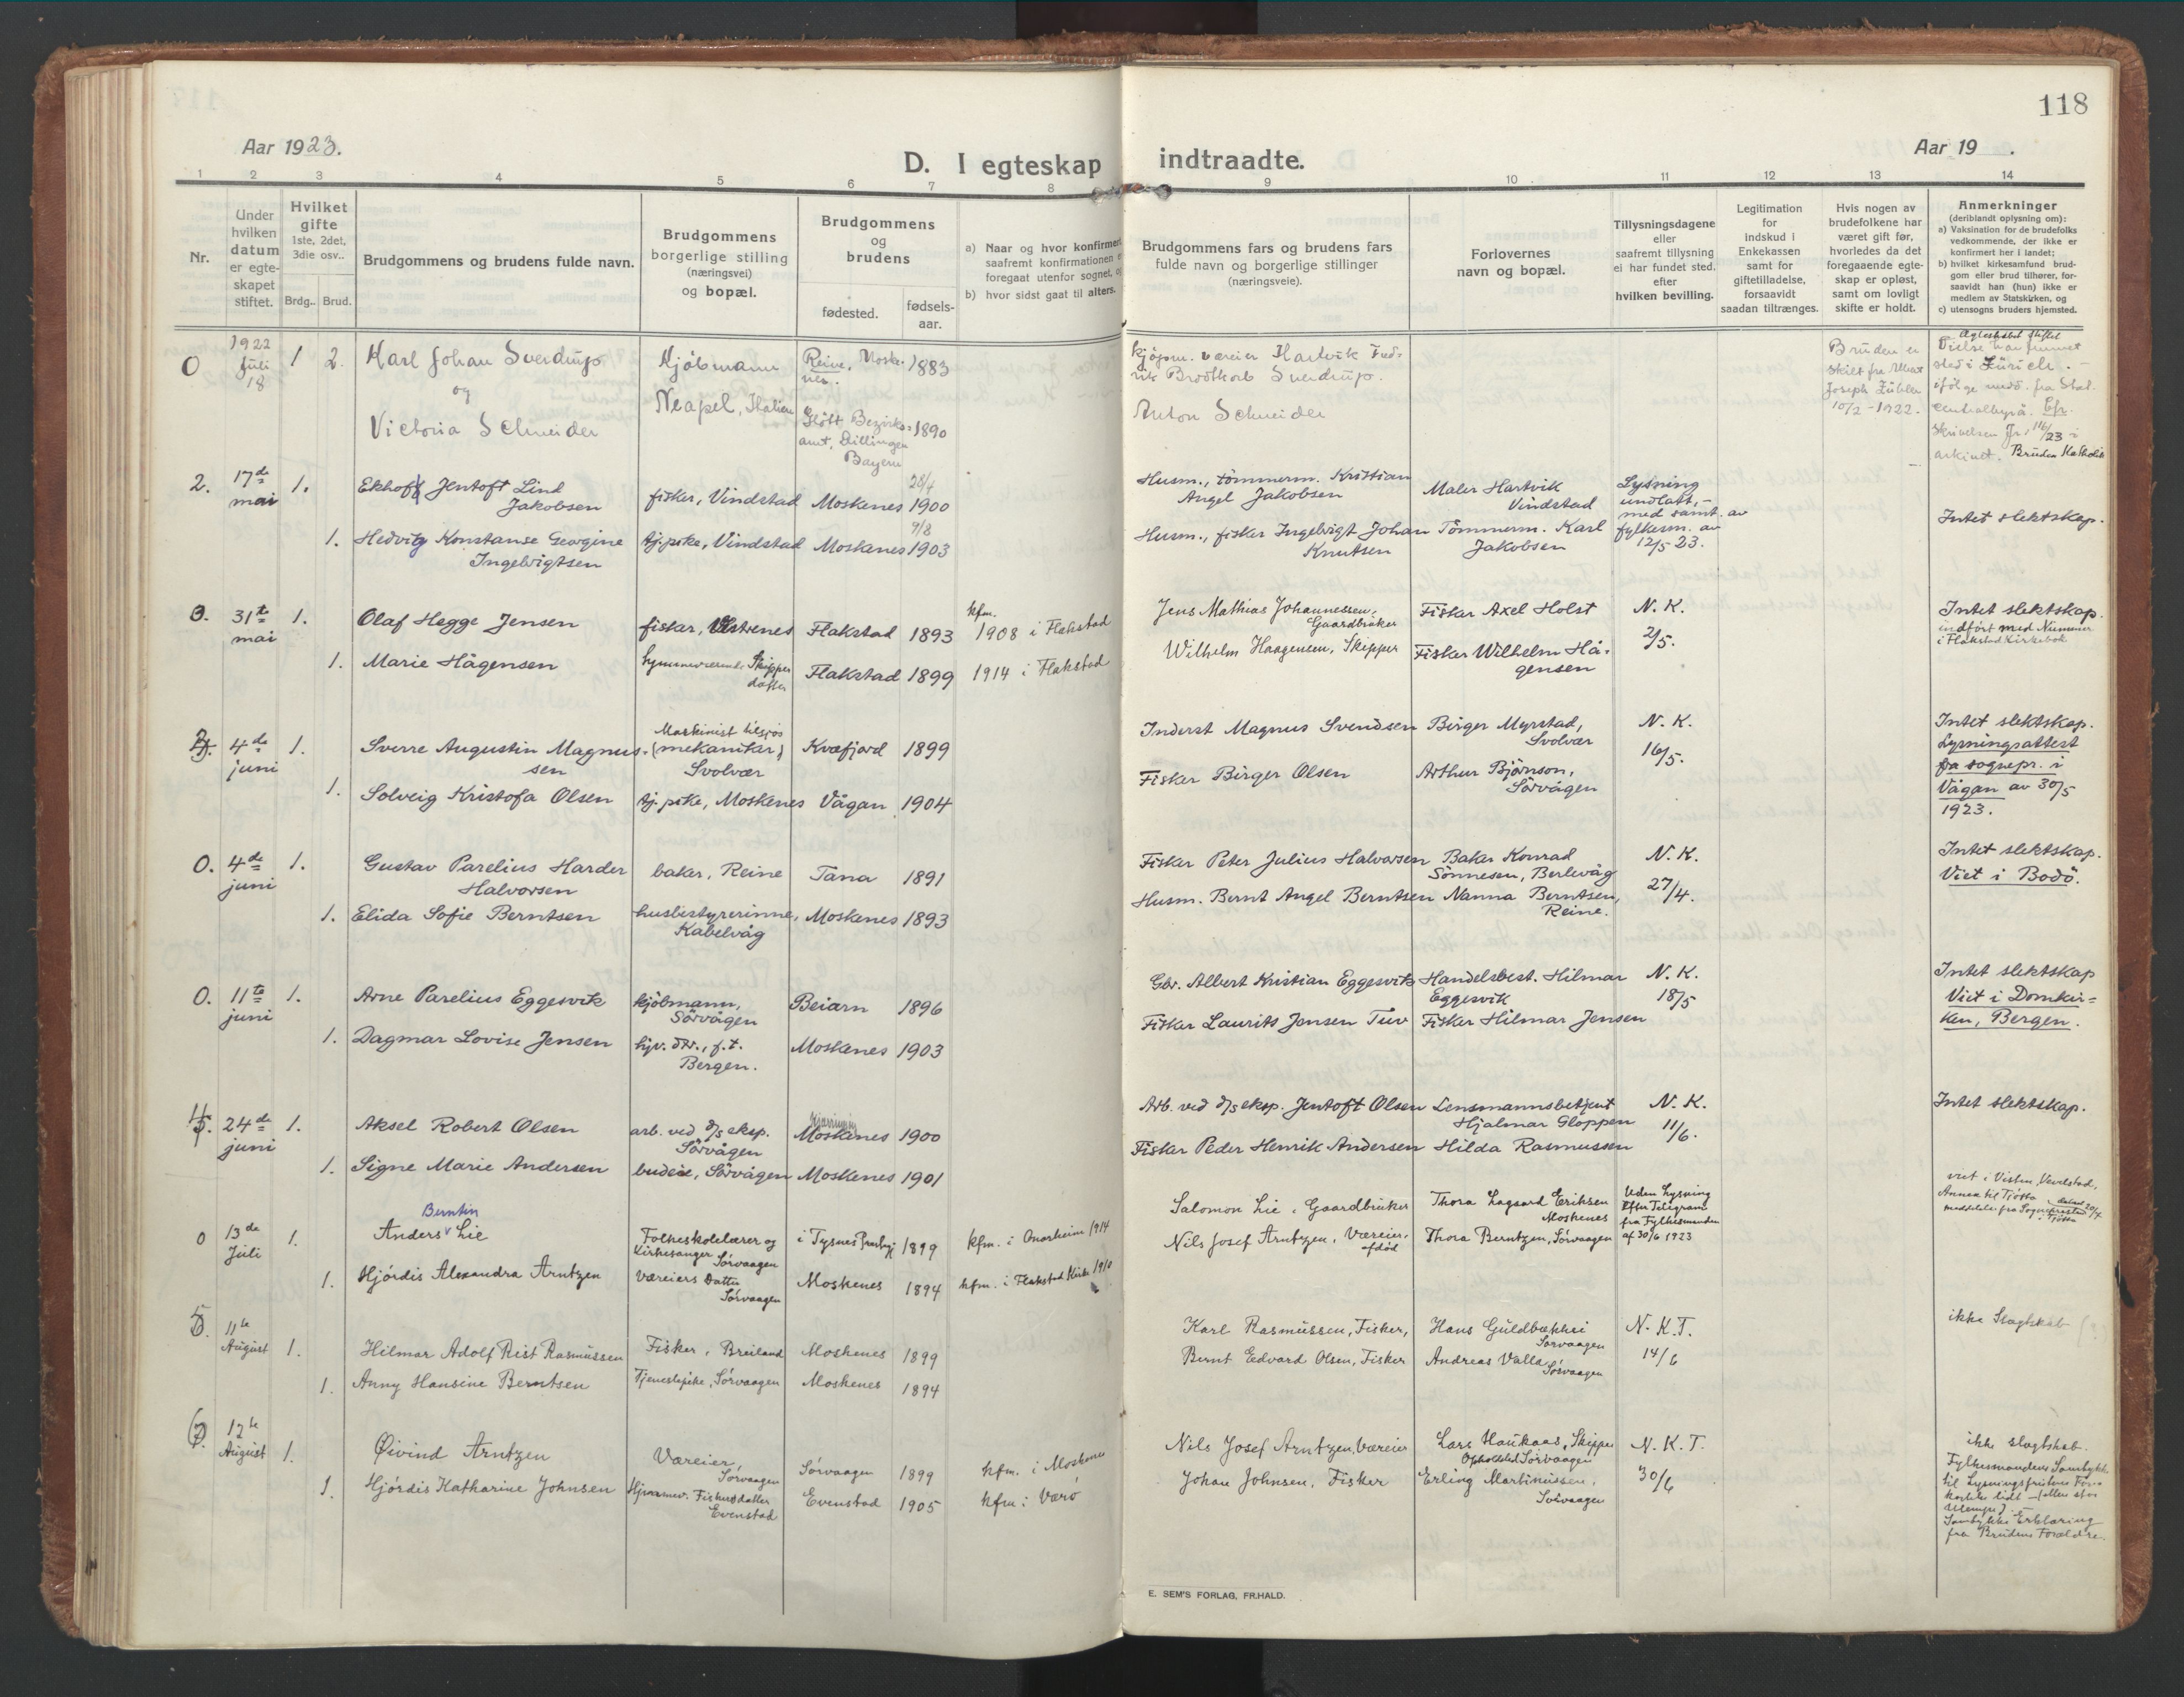 118
Aar 1923.
D. I egteskap indtraadte.
Aar 19 .
1 2 3 4 5 6 7 8 9 10 11 12 13 14
Nr.
Under
hvilken
datum
er egte-
skapet
stiftet.
Hvilket
gifte
1ste, 2det,
3die osv..
Brdg.. Brud.
Brudgommens og brudens fulde navn.
Brudgommens
borgerlige stilling
(næringsvei)
og bopæl.
Brudgommens
og
brudens
fødested.
fødsels-
aar.
a) Naar og hvor konfirmert
saafremt konfirmationen
foregaat utenfor sognet,
b) hvor sidst gaat til alters.
Brudgommens fars og brudens fars
fulde navn og borgerlige stillinger
(næringsveie).
Forlovernes
navn og bopæl.
Tillysningsdagene
eller
saafremt tillysning
ei har fundet sted.
efter
hvilken bevilling.
Legitimation
for
Indskud i
Enkekassen
samt for
giftetilladelse,
forsaavidt
saadan tiltrænges.
Hvis nogen av
brudefolkene har
været gift før,
hvorledes da det
foregaaende egte-
skap er opløst,
samt om lovligt
skifte er holdt.
Anmerkninger
(deriblandt oplysning om):
a) Vaksination for de brudefolks
vedkommende, der ikke er
konfirmert her i landet;
b) hvilket kirkesamfund brud-
gom eller brud tilhører, for-
saavidt han (hun) ikke er
medlem av Statskirken, og
c) utensogns bruders hjemsted.
O
1922
Juli
18
1 2.
Karl Johan Sverdrup
og
Victoria Schneider
Kjöbmann
Neapel, Italien
Reine, Moske-
nes.
1883
Glött Bezirks-
amt, Dillingen
Bayern
1890
Kjøpm. væreier Hartvik Fred-
rik Brodtkorb Sverdrup.
Anton Schneider
Bruden er
skilt fra Albert
Joseph Zübler
10/2-1922.
Egteskabet stiftet
Vielse har funnet
sted i Zürich. -
ifølge medd. fra Stat.
centralbyrå. Cfr.
skrivelsen Jr. 116/23 i
arkivet. Bruden Katholik
2. 17de
mai
1.
Ekhoff Jentoft Lind
Jakobsen
fisker, Vindstad
Moskenes
28/4
1900
Husm., tömmerm. Kristian
Angel Jakobsen
Maler Hartvik
Vindstad
Lysning
undlatt, -
med samt. av
fylkesm. av
12/5 23.
Intet slektskap.
1.
Hedvig Konstanse Georgine
Ingebrigtsen
tj.pike, Vindstad
Moskenes
9/8
1903
Husm., fisker Ingebrigt Johan
Knutsen
Tömmerm. Karl
Jakobsen
O. 31te
mai
1.
Olaf Hegge Jensen
fisker, Vestrenes
Flakstad 1893
kfm.
1908 i Flakstad
Jens Mathias Johannessen,
Gaardbruker
Fisker Axel Holst
N. K.
2/5.
Intet slektskap.
indfört med Nummer
i Flakstad Kirkebok
1.
Marie Hågensen
hjemmeværende Skipper
datter
Flakstad 1899
1914 i Flakstad
Wilhelm Haagensen, Skipper
Fisker Wilhelm Hå-
gensen
3. 4de
juni
1.
Sverre Augustin Magnus-
sen
Maskinist tilsjøs
(mekaniker)
Svolvær
Kvæfjord 1899
Inderst Magnus Svendsen
Birger Myrstad,
Svolvær
N. K.
16/5.
Intet slektskap.
Lysningsattest
fra sognepr. i
Vågan av 30/5
1923.
1.
Solveig Kristofa Olsen
tj. pike, Moskenes
Vågan 1904
Fisker Birger Olsen
Arthur Björnson,
Sörvågen
O. 4de
juni
1.
Gustav Parelius Harder
Halvorsen
baker, Reine
Tana 1891
Fisker Peter Julius Halvorsen
Baker Konrad
Sönnesen, Berlevåg
N. K.
27/4.
Intet slektskap.
Viet i Bodö.
1.
Elida Sofie Berntsen
husbestyrerinne,
Kabelvåg
Moskenes 1893
Husm. Bernt Angel Berntsen
Nanna Berntsen,
Reine.
O. 11te
juni
1.
Arne Parelius Eggesvik
kjöbmann,
Sörvågen
Beiarn 1896
Gbr. Albert Kristian Eggesvik
Handelsbest. Hilmar
Eggesvik
N. K.
18/5
Intet slektskap
Viet i Domkir-
ken, Bergen.
1.
Dagmar Lovise Jensen
hjv. dtr., f.t.
Bergen.
Moskenes 1903
Fisker Laurits Jensen Tuv
Fisker Hilmar Jensen
4. 24de
juni
1.
Aksel Robert Olsen
arb. ved d/s eksp.
Sörvågen
Moskenes 1900
Arb. ved d/s eksp. Jentoft Olsen
Lensmannsbetjent
Hjalmar Gloppen
N. K.
11/6.
Intet slektskap.
1.
Signe Marie Andersen
budeie, Sörvågen
Moskenes 1901
Fisker Peder Henrik Andersen
Hilda Rasmussen
O 13de
Juli
1.
Berntin
Anders Lie
Folkeskolelærer og
Kirkesanger Sørvaagen
i Tysnes 1899
kfm. i Onarheim 1914
Salomon Lie, Gaardbruker
Thora Lagaard Eriksen
Moskenes
Uden Lysning
Efter Telegram
fra Fylkesmanden
af 30/6 1923
viet i Visten, Vevelstad,
Annex til Tjötta
meddelelse fra Sognepresten
i Tjötta
1.
Hjördis Alexandra Arntzen
Væreiers Datter
Sörvaagen
Moskenes 1894
kfm. i Flakstad Kirke 1910
Nils Josef Arntzen, Væreier,
afdöd
Thora Berntzen, Sørvaagen
5. 11te
August
1.
Hilmar Adolf Rist Rasmussen
Fisker, Breiland
Moskenes 1899
Karl Rasmussen, Fisker,
Hans Guldbækkei
Sørvaagen
N. K. T.
14/6
ikke Slagtskab
1.
Anny Hansine Berntsen
Tjenestepike, Sörvaagen
Moskenes 1894
Bernt Edvard Olsen, Fisker
Andreas Valla
Sörvaagen
12te
August
1.
Øivind Arntzen
Væreier,
Sörvaagen
Sörvaagen 1899
kfm. i Moskenes
Nils Josef Arntzen, Væreier
Lars Haukaas, Skipper
Opholdsted Sørvaagen
N. K. T.
30/6
ikke slagtskab.
Fylkesmandens Samtykke
til Lysningsfristens For-
kortelse
Samtykke Erklæring
fra Brudens Forældre
1.
Hjördis Katharine Johnsen
Hjemmev. Fiskerdatter
Evenstad
Evenstad 1905
kfm i Værö
Johan Johnsen, Fisker
Erling Martinussen,
Sörvaagen
E. SEM'S FORLAG, FR.HALD.